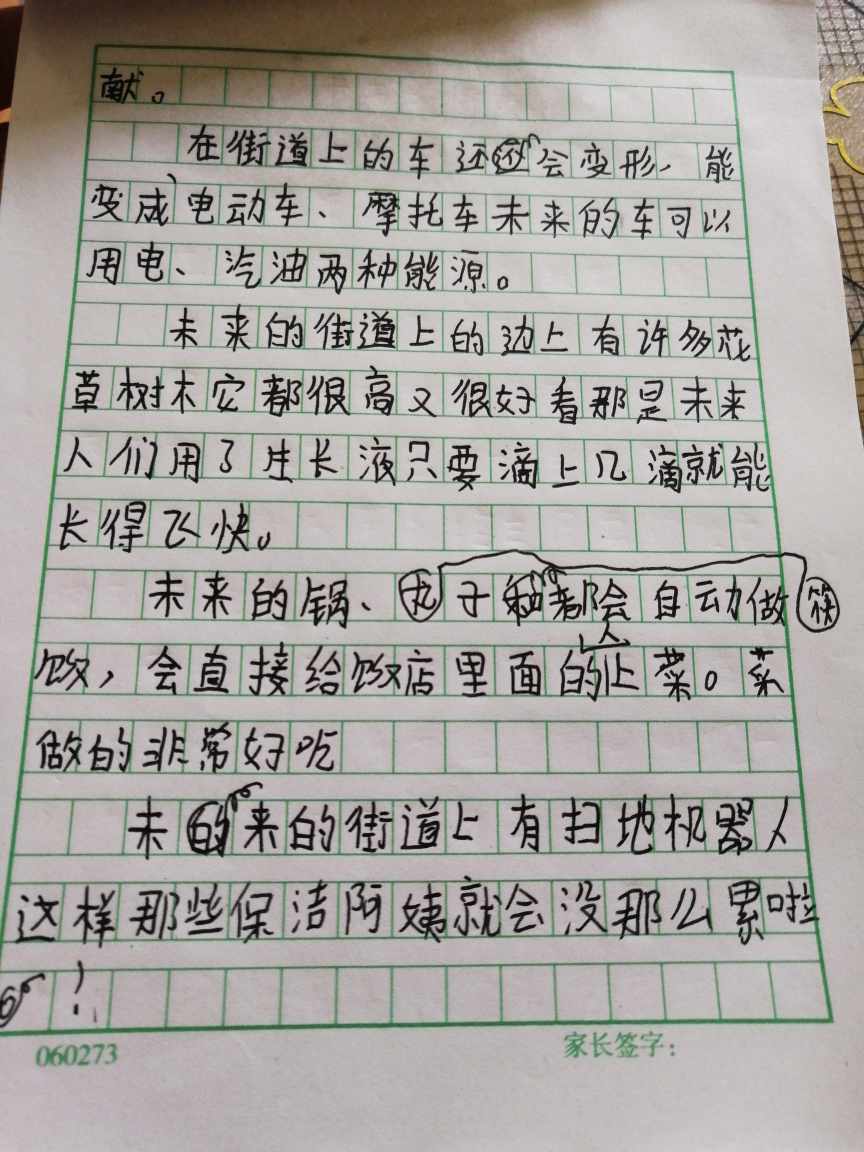 献。
在街道上的车还会变形，能
变成电动车、摩托车未来的车可以
用电、汽油两种能源。
未来的街道上的边上有许多花
草树木它都很高又很好看那是未来
人们用了生长液只要滴上几滴就能
长得飞快。
未来的锅、筷子都会自动做
饭，会直接给饭店里面的人上菜。菜
做的非常好吃
未来的街道上有扫地机器人
这样那些保洁阿姨就会没那么累啦
！
060273
家长签字：